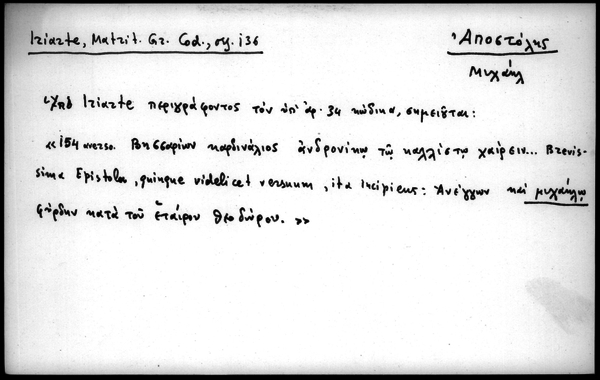 Iriarte, Matrit. Gr. Cod., σγ. 136
Ἀποστόλης
Μιχαήλ
Ὑπὸ Iriarte περιγράφοντος τὸν ὑπ' ἀρ. 34 κώδικα, σημειοῦται:
«154 averso. Βησσαρίων καρδινάλιος ἀνδρονίκῳ τῷ καλλίστῳ χαίρειν... Brevis-
sima Epistola, quinque videlicet versuum, ita incipiens: Ἀνέγνων καὶ μιχαήλῳ
φύρδην κατὰ τοῦ ἑταίρου θεοδώρου. »